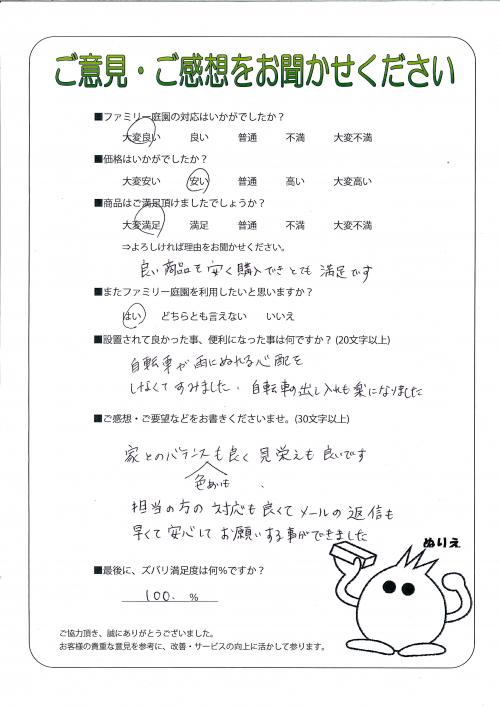 ご意見・ご感想をお聞かせください
■ファミリー庭園の対応はいかがでしたか？
大変良い 良い 普通 不満 大変不満
■価格はいかがでしたか？
大変安い 安い 普通 高い 大変高い
■商品はご満足頂けましたでしょうか？
大変満足 満足 普通 不満 大変不満
⇒よろしければ理由をお聞かせください。
良い商品を安く購入できとても満足です
■またファミリー庭園を利用したいと思いますか？
はい どちらとも言えない いいえ
■設置されて良かった事、便利になった事は何ですか？(20文字以上)
自転車が雨にぬれる心配を
しなくてすみました。自転車の出し入れも楽になりました
■ご感想・ご要望などをお書きくださいませ。(30文字以上)
家とのバランスも良く見栄えも良いです
色あいも、
担当の方の対応も良くてメールの返信も
早くて安心してお願いする事ができました
ぬりえ
■最後に、ズバリ満足度は何％ですか？
100. %
ご協力頂き、誠にありがとうございました。
お客様の貴重な意見を参考に、改善・サービスの向上に活かして参ります。